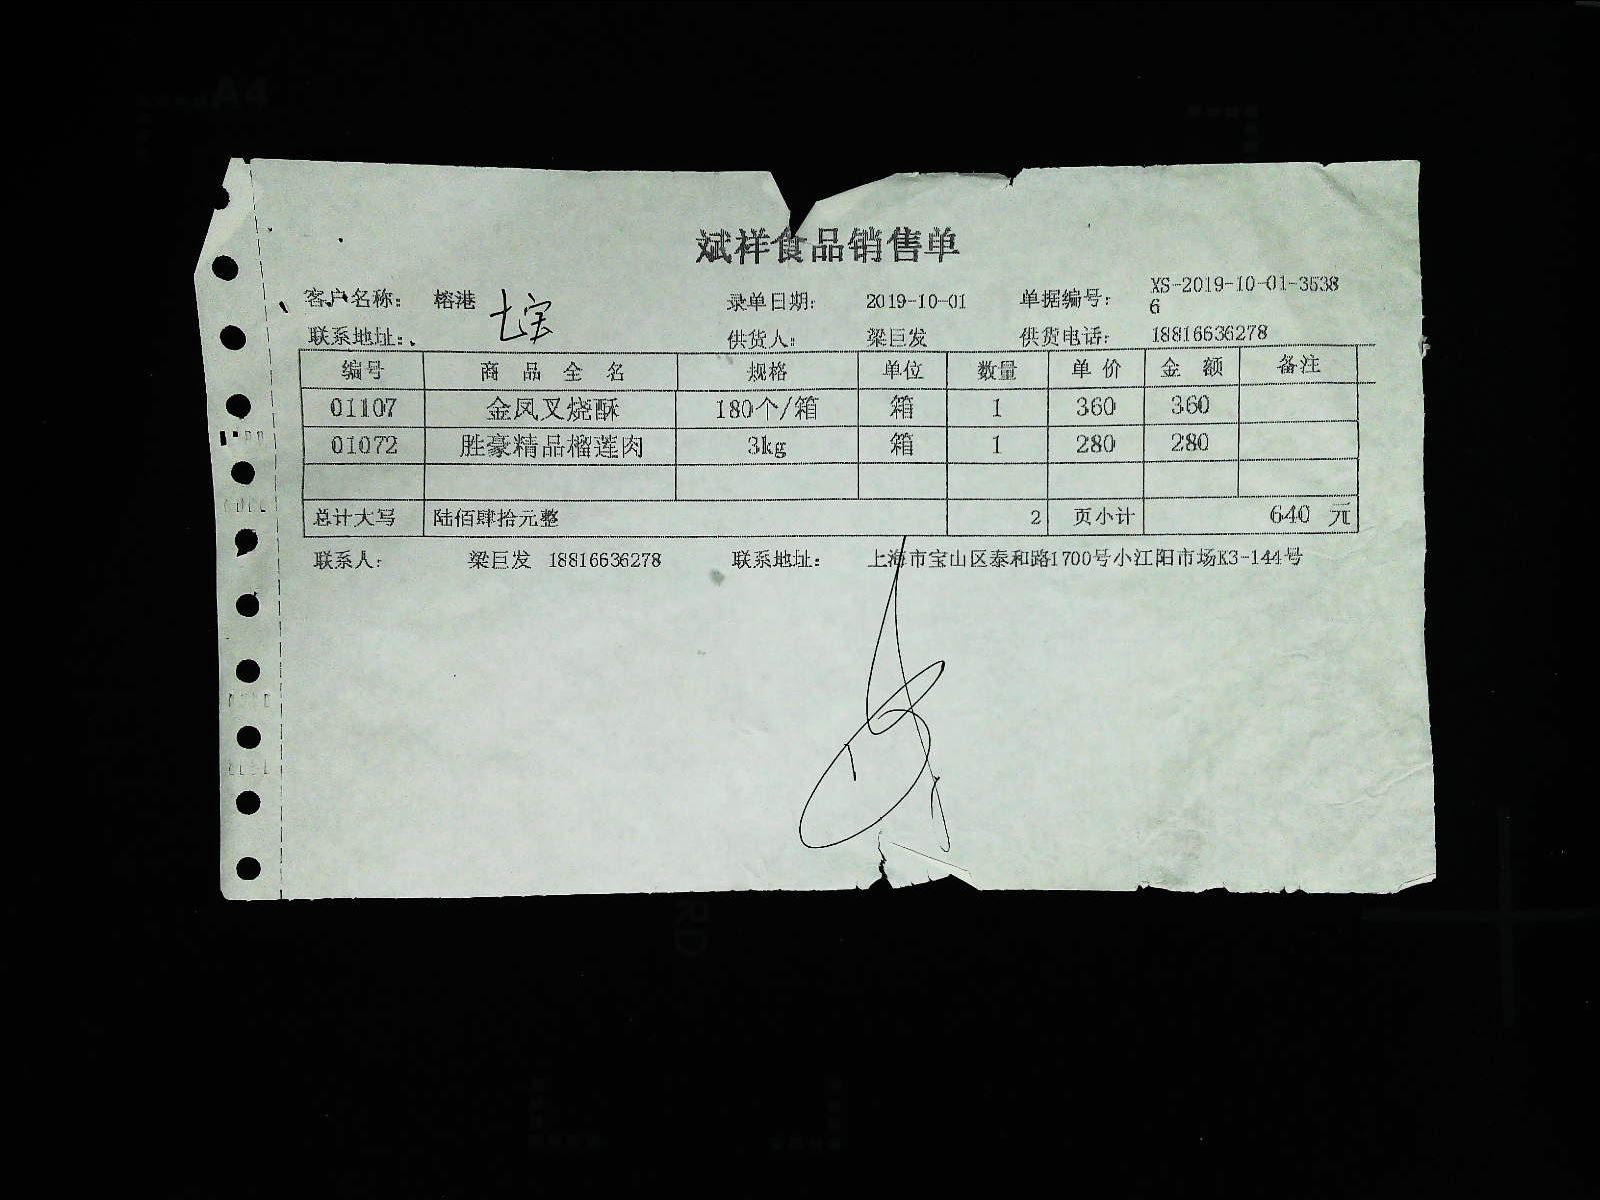 斌祥食品销售单
客户名称： 榕港 七宝 录单日期： 2019-10-01 单据编号： XS-2019-10-01-35386
联系地址： 供货人： 梁巨发 供货电话： 18816636278
编号 商品全名 规格 单位 数量 单价 金额 备注
01107 金凤叉烧酥 180个/箱 箱 1 360 360
01072 胜豪精品榴莲肉 3kg 箱 1 280 280
总计大写 陆佰肆拾元整 2 页小计 640 元
联系人： 梁巨发 18816636278 联系地址： 上海市宝山区泰和路1700号小江阳市场K3-144号